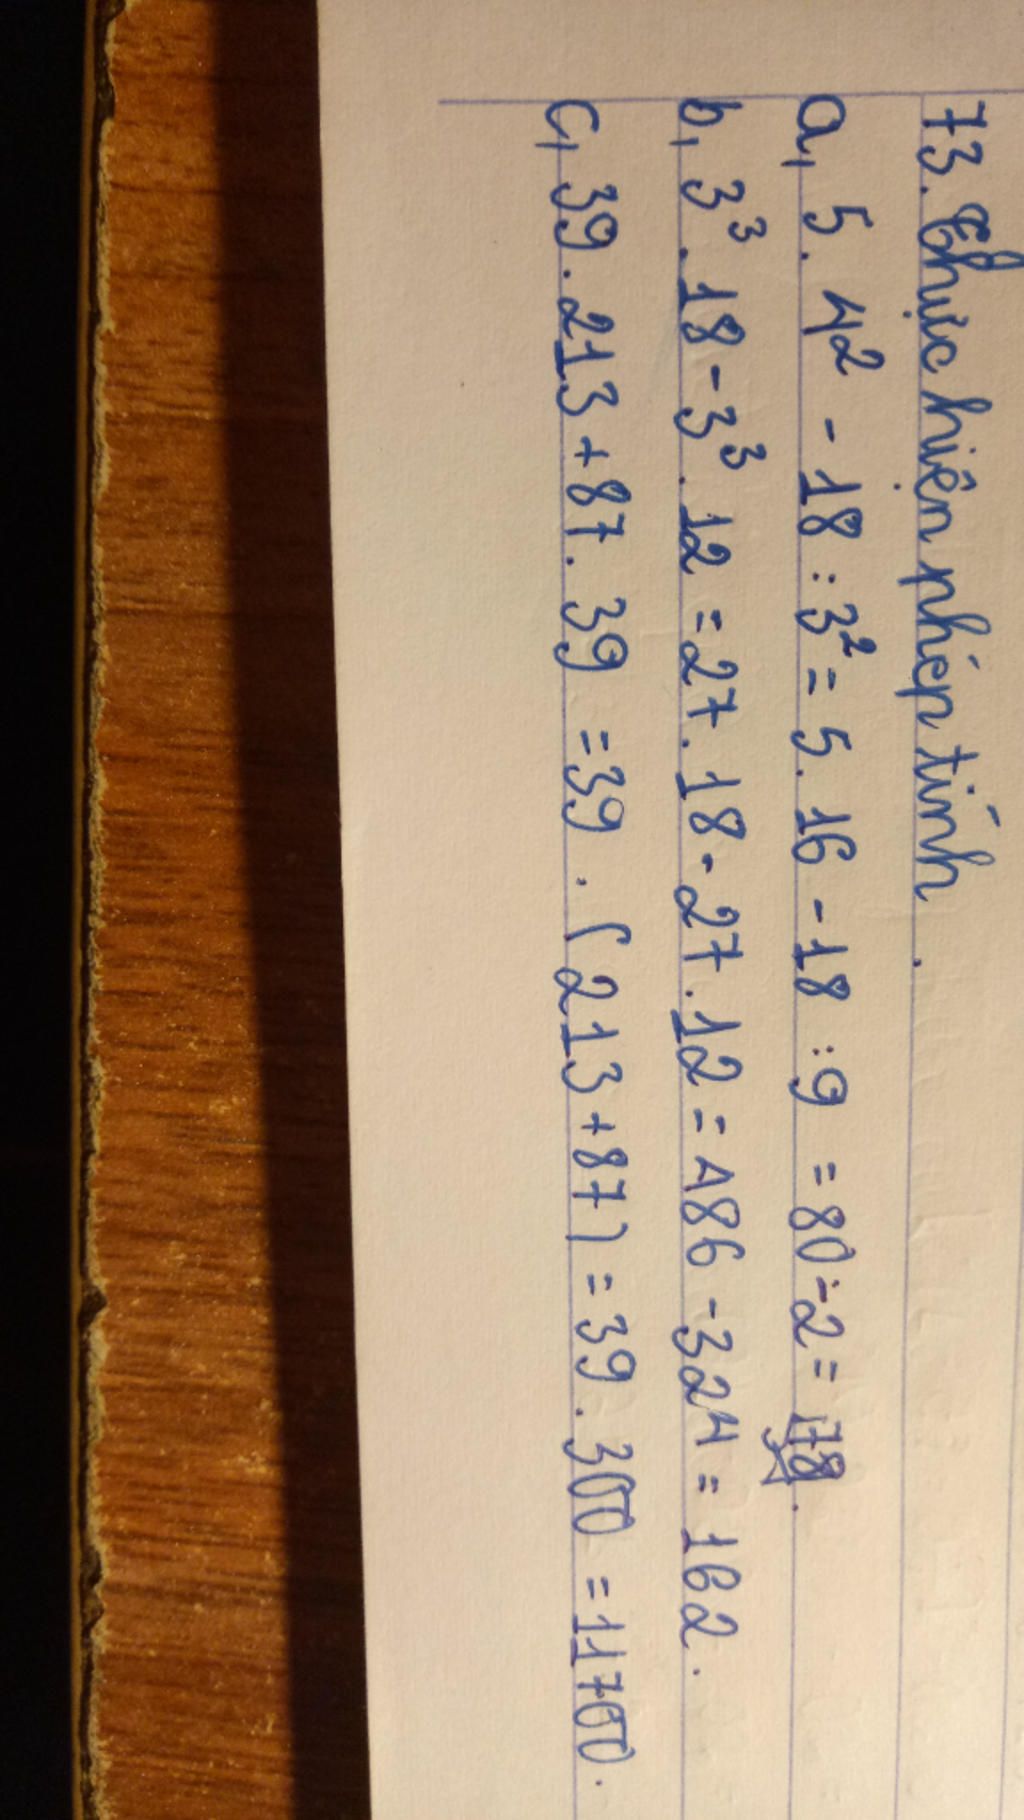 73. Thực hiện phép tính.
a, 5. 4² - 18 : 3² = 5. 16 - 18 : 9 = 80 - 2 = 78.
b, 3³. 18 - 3³. 12 = 27. 18 - 27. 12 = 486 - 324 = 162.
c, 39. 213 + 87. 39 = 39. (213 + 87) = 39. 300 = 11700.